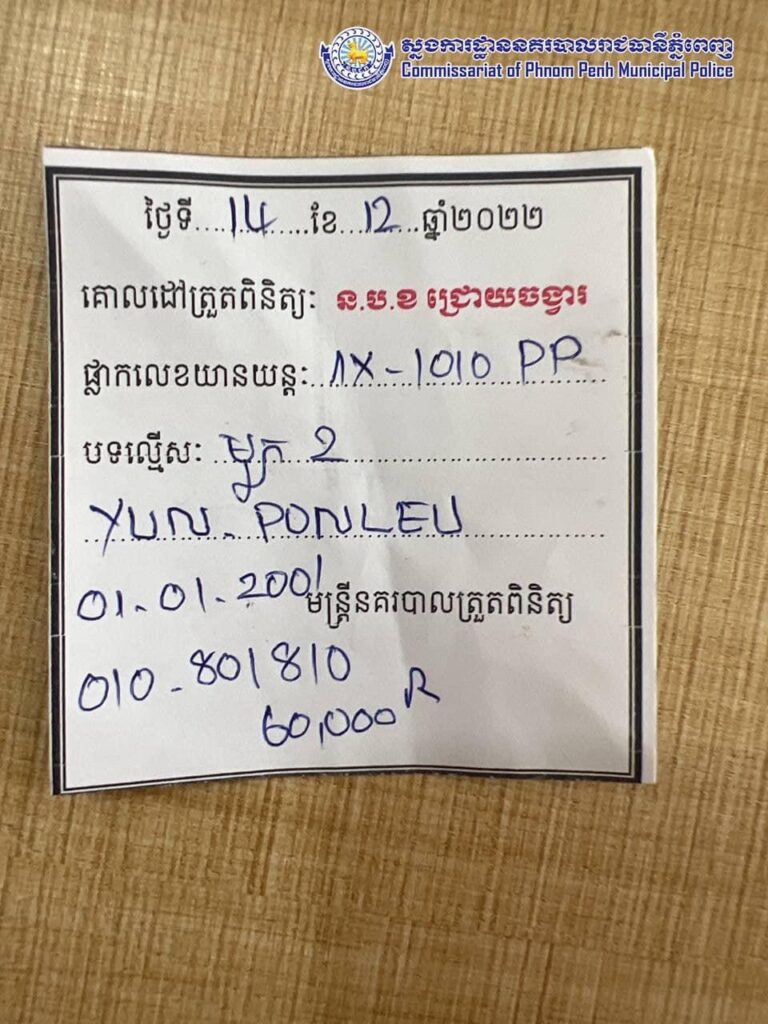 ស្នងការដ្ឋាននគរបាលរាជធានីភ្នំពេញ
Commissariat of Phnom Penh Municipal Police
ថ្ងៃទី....14......ខែ...12...ឆ្នាំ២០២២
គោលដៅត្រួតពិនិត្យៈ ន.ប.ខ ជ្រោយចង្វារ
ផ្លាកលេខយានយន្តៈ 1X-1010 PP
បទល្មើសៈ មួក 2
YUN. PONLEU
01-01-2001 មន្ត្រីនគរបាលត្រួតពិនិត្យ
010-801810
60,000 R